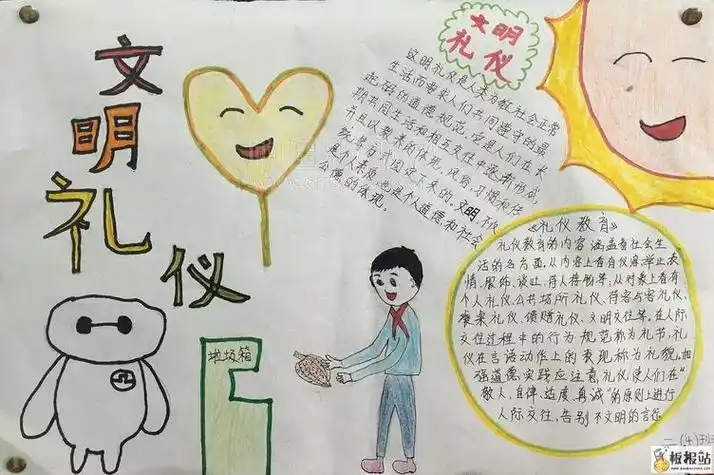 文明礼仪
文明
礼仪
文明礼仪是人类为维社会正常
生活而要求人们共同遵守的最
起码的道德规范,它是人们在长
期共同生活和相互交往中逐渐形成,
并且以
风俗、习惯和传
统等方式固定下来的,文明
是个人素质
也是个人道德和社会
公德的体现。
《礼仪教育》
礼仪教育的内容涵盖着社会生
活的各方面。从内容上看有仪容、举止、表
情、服饰、谈吐、待人接物等;从对象上看有
个人礼仪、公共场所礼仪、待客与客礼仪、
餐桌礼仪、馈赠礼仪、文明交往等。在人际
交往过程中的行为规范称为礼节,礼
仪在言语动作上的表现称为礼貌。加
强道德实践应注意礼仪,使人们在“
敬人、自律、适度、真诚”的原则上进行
人际交往,告别不文明的言行
垃圾箱
二(4)班
板报站